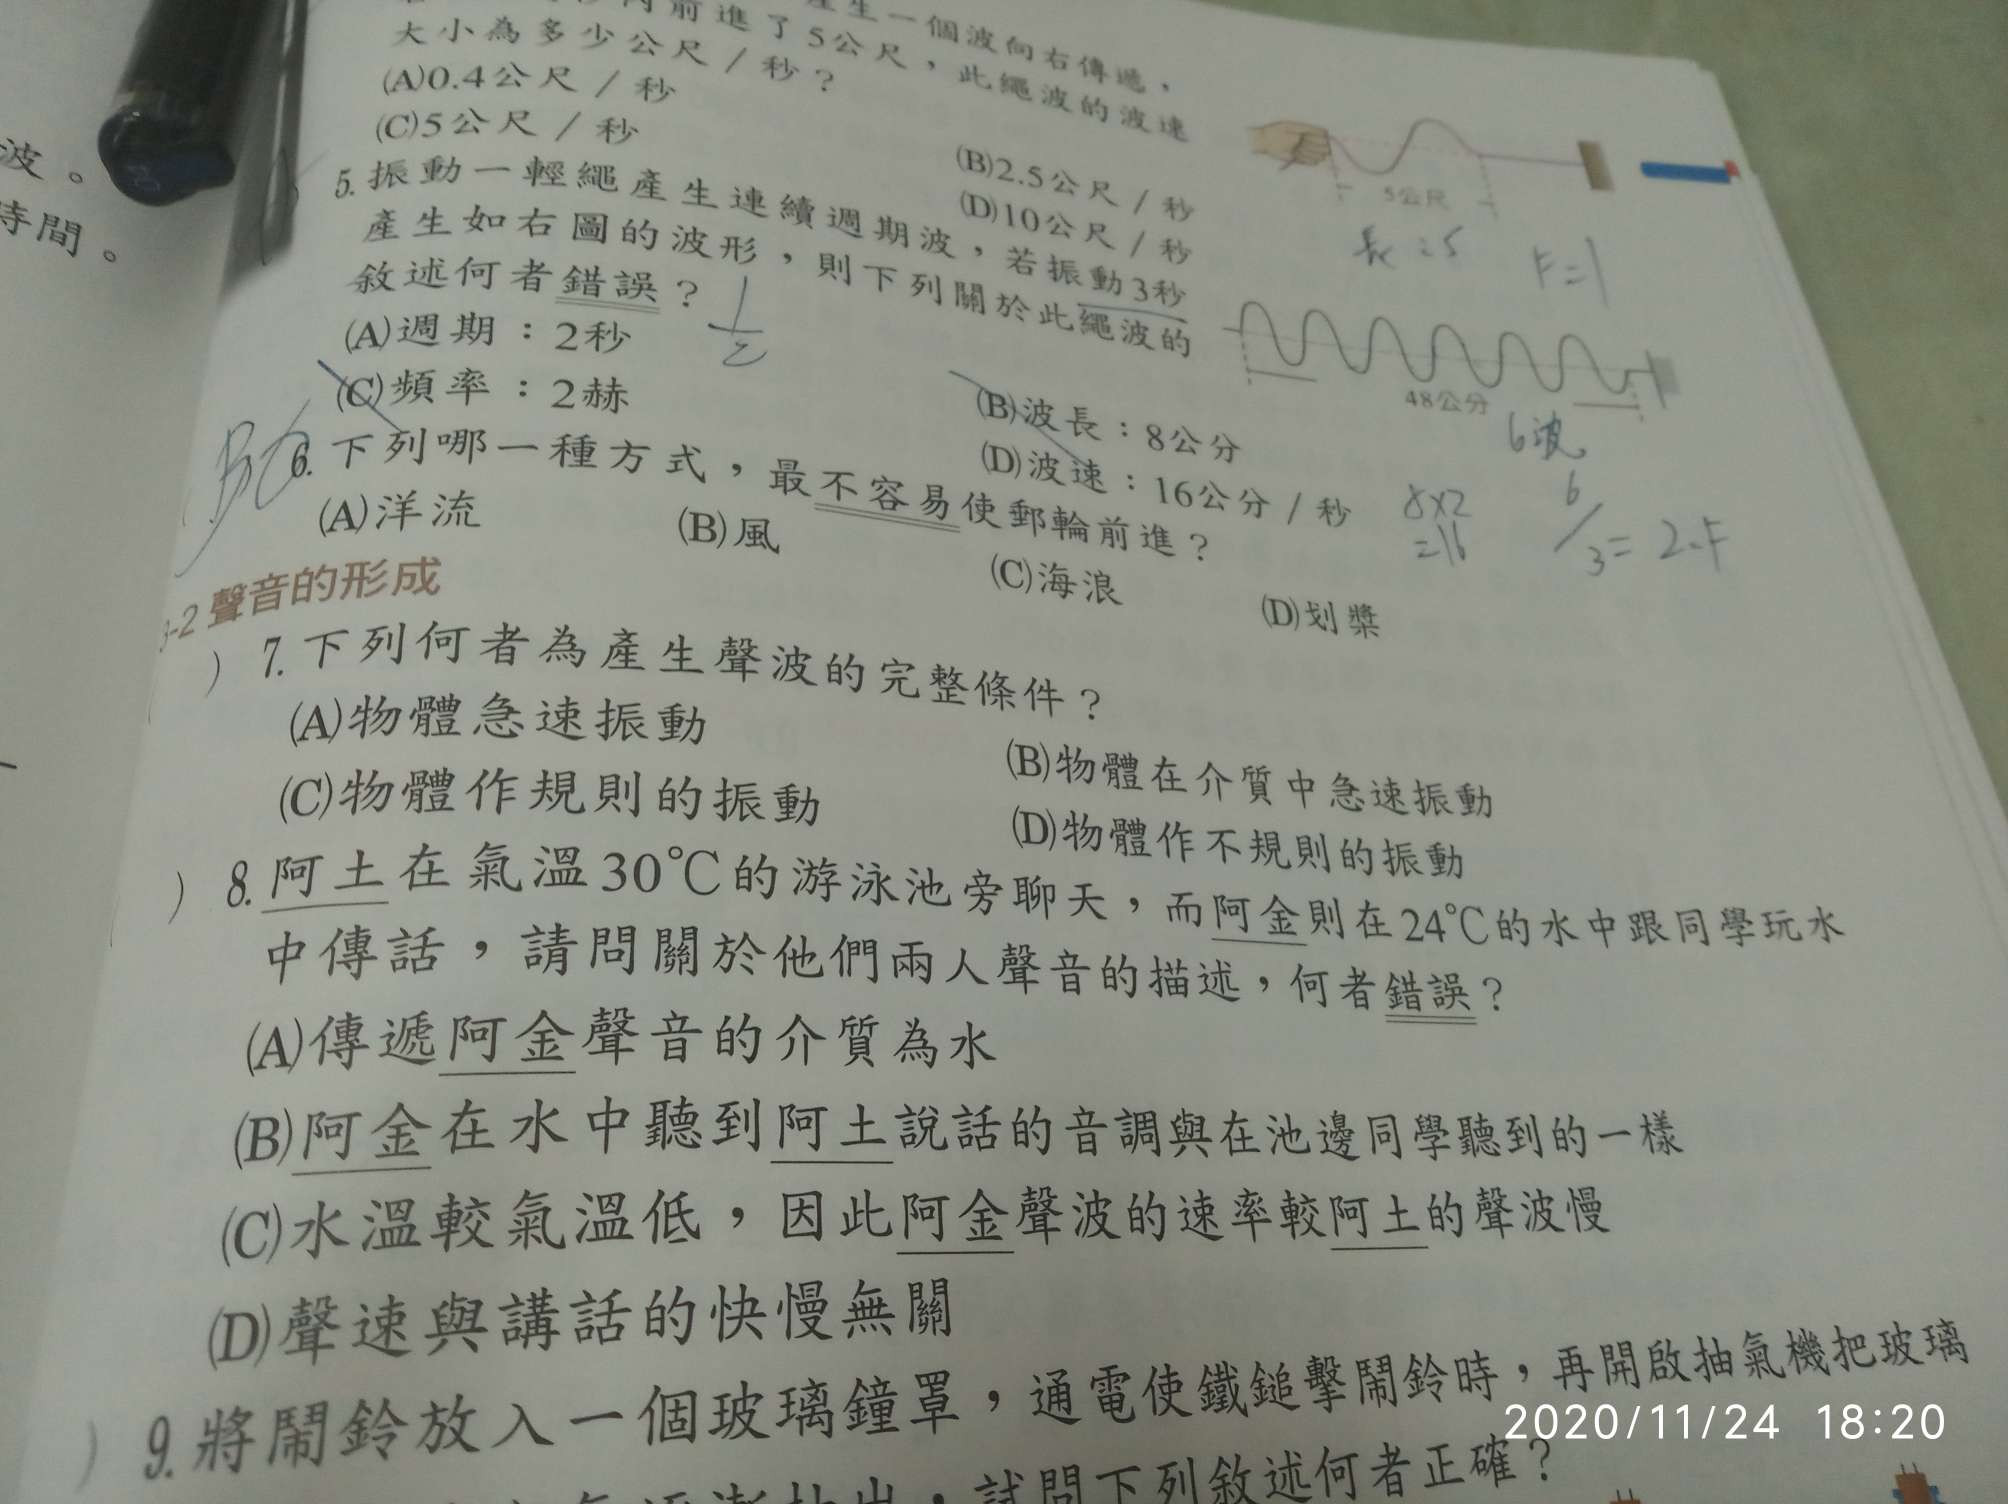 波。
時間。
前進了5公尺，此繩波的波速
產生一個波向右傳遞，
大小為多少公尺/秒？
(A)0.4公尺/秒
(B)2.5公尺/秒
(C)5公尺/秒
(D)10公尺/秒
5公尺
長=5
F=1
5.振動一輕繩產生連續週期波，若振動3秒
產生如右圖的波形，則下列關於此繩波的
敘述何者錯誤？
1/2
(A)週期：2秒
(B)波長：8公分
(C)頻率：2赫
(D)波速：16公分/秒
48公分
6波
8×2
=16
6/3=2.F
6.下列哪一種方式，最不容易使郵輪前進？
(A)洋流
(B)風
(C)海浪
(D)划槳
3-2聲音的形成
)7.下列何者為產生聲波的完整條件？
(A)物體急速振動
(B)物體在介質中急速振動
(C)物體作規則的振動
(D)物體作不規則的振動
)8.阿土在氣溫30℃的游泳池旁聊天，而阿金則在24℃的水中跟同學玩水
中傳話，請問關於他們兩人聲音的描述，何者錯誤？
(A)傳遞阿金聲音的介質為水
(B)阿金在水中聽到阿土說話的音調與在池邊同學聽到的一樣
(C)水溫較氣溫低，因此阿金聲波的速率較阿土的聲波慢
(D)聲速與講話的快慢無關
)9.將鬧鈴放入一個玻璃鐘罩，通電使鐵鎚擊鬧鈴時，再開啟抽氣機把玻璃
，試問下列敘述何者正確？
2020/11/24 18:20